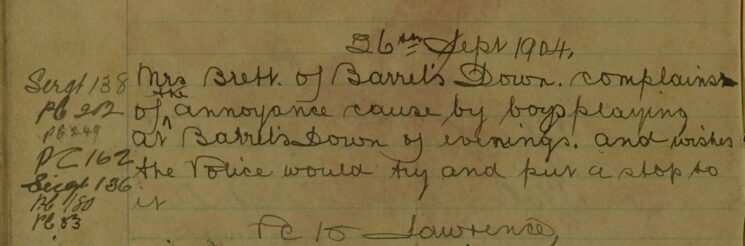 26th Sept 1904.
Sergt 138
PC 202
PC 249
PC 162
Sergt 136
PC 180
PC 83
Mrs Brett. of Barrel's Down. complains
of the annoyance cause by boys playing
at Barrel's Down of evenings. and wishes
the Police would try and put a stop to
it
PC 10 Lawrence,